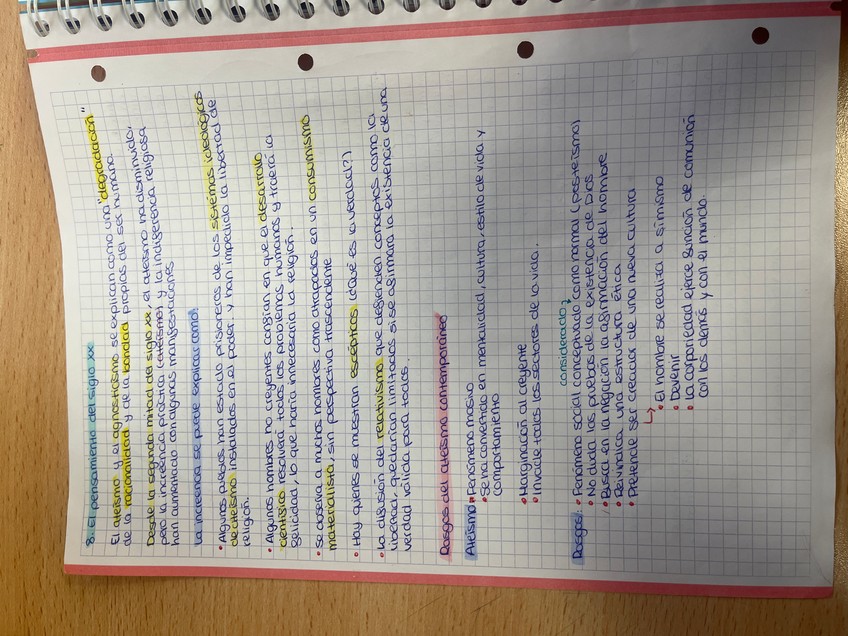 8. El pensamiento del siglo XX
El ateísmo y el agnosticismo se explican como una "degradación"
de la racionalidad y de la bondad propias del ser humano.
Desde la segunda mitad del siglo XX, el ateísmo ha disminuido,
pero la increencia práctica (ateísmo) y la indiferencia religiosa
han aumentado con algunas manifestaciones
La increencia se puede explicar como:
• Algunos pueblos han estado prisioneros de los sistemas ideológicos
de ateísmo instalados en el poder y han impedido la libertad de
religión.
• Algunos hombres no creyentes confían en que el desarrollo
científico resolverá todos los problemas humanos y traerá la
felicidad, lo que haría innecesaria la religión.
• Se observa a muchos hombres como atrapados en un consumismo
materialista, sin perspectiva trascendente
• Hay quienes se muestran escépticos (¿Qué es la verdad?)
• La difusión del relativismo que defienden conceptos como la
libertad, quedarían limitados si se afirmara la existencia de una
verdad válida para todos.
Rasgos del ateísmo contemporáneo
Ateísmo: • Fenómeno masivo
• Se ha convertido en mentalidad, cultura, estilo de vida y
comportamiento
• Marginación al creyente
• Invade todos los sectores de la vida.
considerado
Rasgos: • Fenómeno social conceptuado como normal (postteísmo)
• No duda las pruebas de la existencia de Dios
• Busca en la negación la afirmación del hombre
• Reivindica una estructura ética
• Pretende ser creador de una nueva cultura
↳ • El hombre se realiza a sí mismo
• Devenir
• La corporiedad ejerce función de comunión
con los demás y con el mundo.